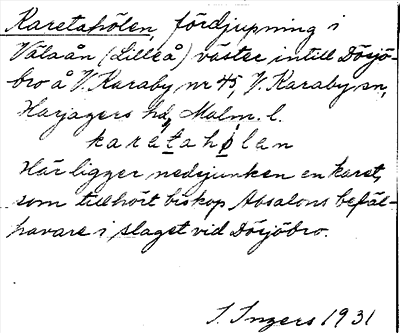 Karetahölen, fördjupning i
Välaån (Lilleå) väster intill Dösjö-
bro å V. Karaby nr 45, V. Karaby sn,
Harjagers hd, Malm. l.
karetahölen
Här ligger nedsjunken en karet,
som tillhört biskop Absalons befäl-
havare i slaget vid Dösjöbro.
I. Ingers 1931